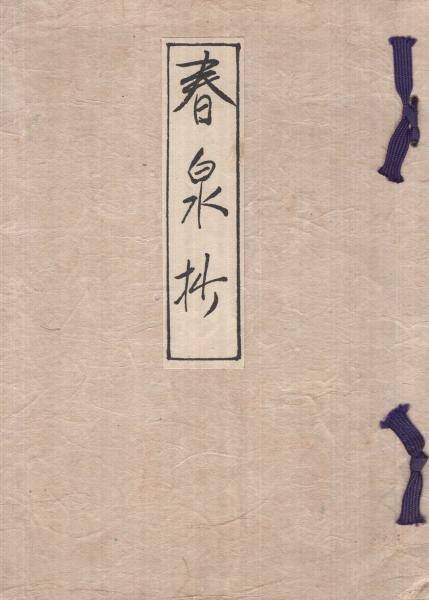 春泉抄